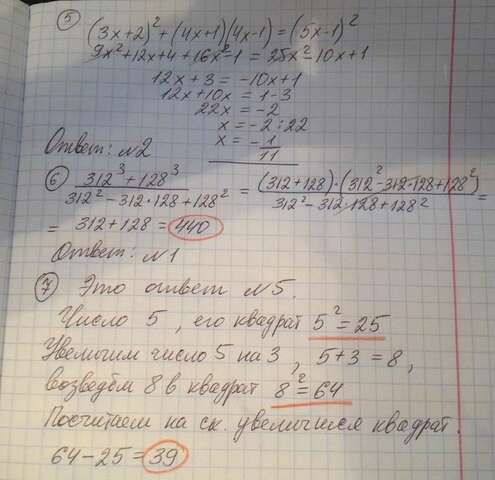 ⑤ (3x+2)² + (4x+1)(4x-1) = (5x-1)²
9x²+12x+4+16x²-1 = 25x²-10x+1
12x+3 = -10x+1
12x+10x = 1-3
22x = -2
x = -2 : 22
x = - 1/11
Ответ: N2
⑥ (312³+128³)/(312²-312·128+128²) = ((312+128)·(312²-312·128+128²))/(312²-312·128+128²) =
= 312+128 = 440
Ответ: N1
⑦ Это ответ N5.
Число 5, его квадрат 5²=25
Увеличим число 5 на 3, 5+3=8,
возведём 8 в квадрат 8²=64
Посчитаем на ск. увеличился квадрат.
64-25=39